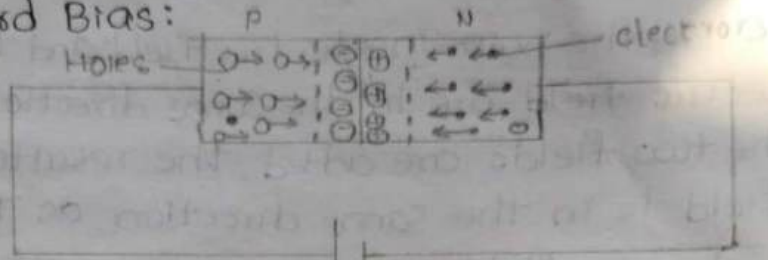 rd Bias:
P N
Holes electrons